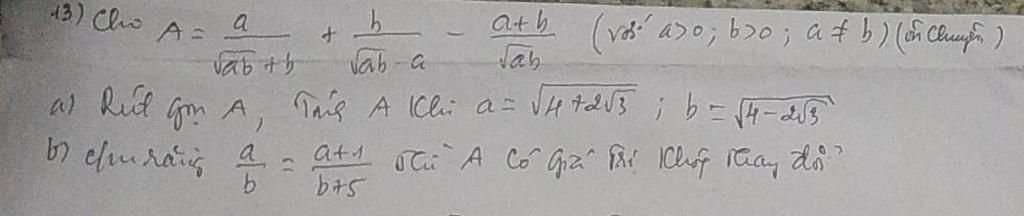 13) Cho A = a/(√ab + b) + b/(√ab - a) - (a+b)/√ab (với a>0; b>0; a ≠ b) (ôn chuyên)
a) Rút gọn A, Tính A Khi a = √(4+2√3) ; b = √(4-2√3)
b) c/m rằng a/b = (a+1)/(b+5) thì A có giá trị không thay đổi